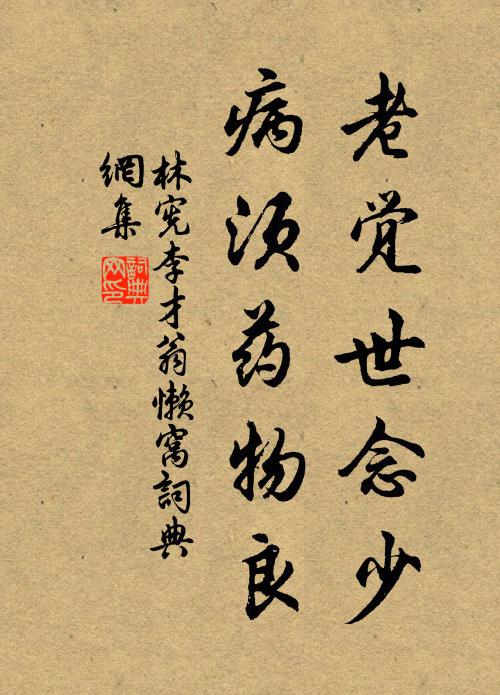 老觉世念少
病须药物良
林宪李才翁懒窝詞典
網集
詞典
网印